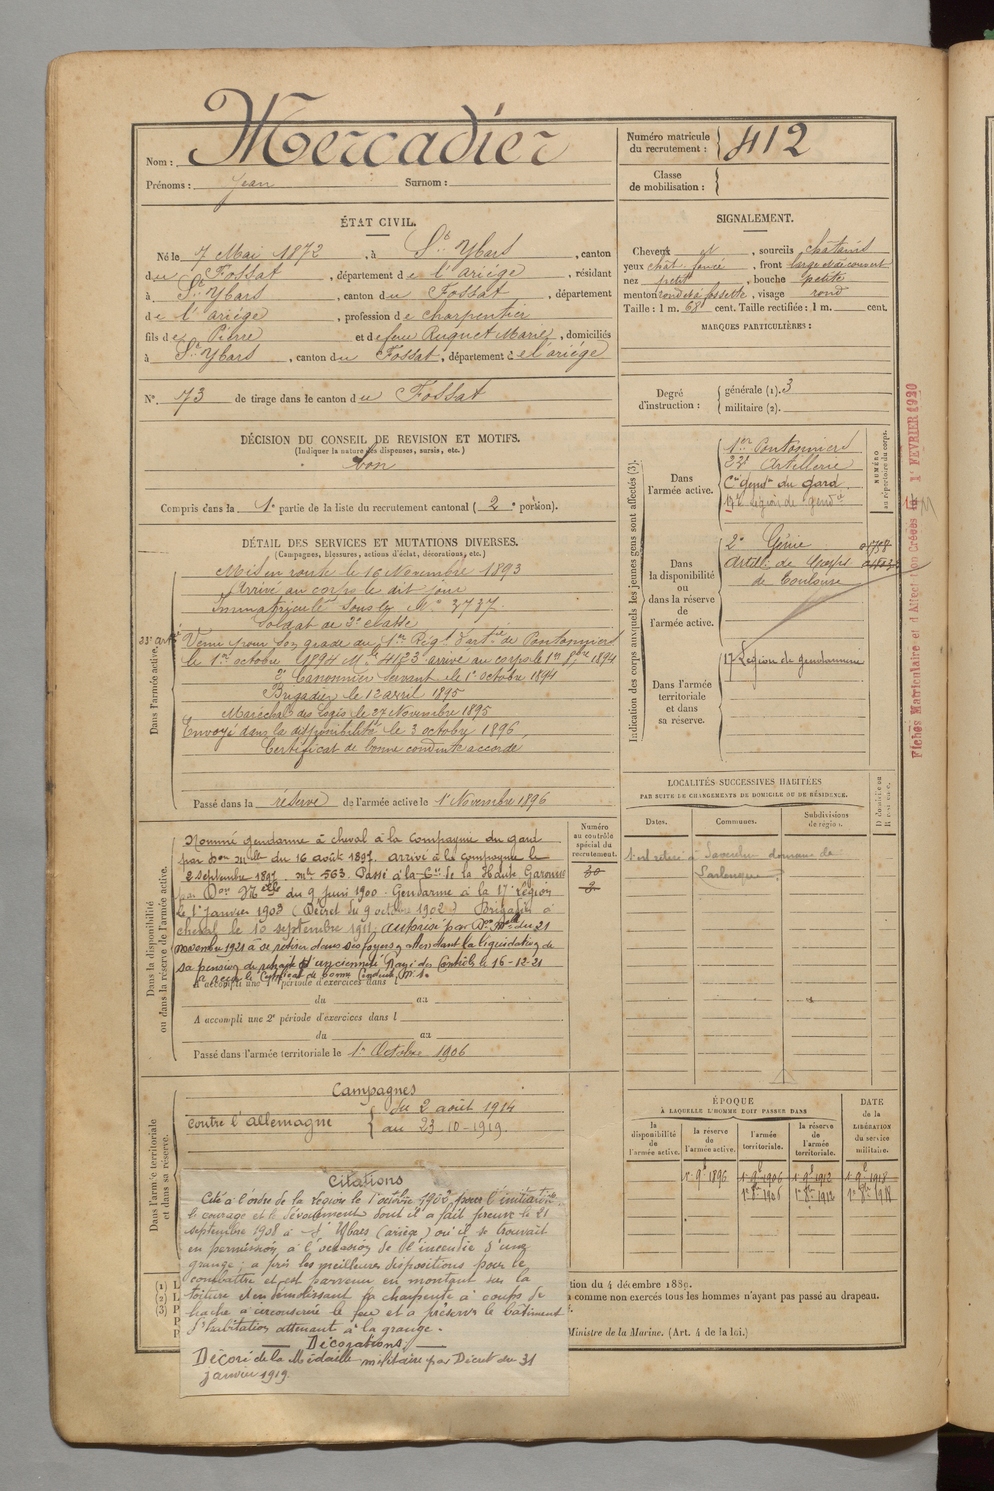 Nom : Mercadier
Prénoms : Jean Surnom :
Numéro matricule du recrutement : 412
Classe de mobilisation :
ÉTAT CIVIL.
Né le 7 Mai 1872, à St Ybars, canton
du Fossat, département de l'ariège, résidant
à St Ybars, canton du Fossat, département
de l'ariège, profession de charpentier
fils de Pierre et de feue Ruquet Marie, domiciliés
à St Ybars, canton du Fossat, département de l'ariége
N° 73 de tirage dans le canton du Fossat
SIGNALEMENT.
Cheveux et, sourcils chatains
yeux chât. foncé, front large et découvert
nez petit, bouche petite
menton rond et à fossette, visage rond
Taille : 1 m. 68 cent. Taille rectifiée : 1 m. cent.
MARQUES PARTICULIÈRES :
Degré d'instruction : générale (1). 3
militaire (2).
DÉCISION DU CONSEIL DE REVISION ET MOTIFS.
(Indiquer la nature des dispenses, sursis, etc.)
bon
Compris dans la 1e partie de la liste du recrutement cantonal (2e portion).
DÉTAIL DES SERVICES ET MUTATIONS DIVERSES.
(Campagnes, blessures, actions d'éclat, décorations, etc.)
Dans l'armée active.
Mis en route le 16 Novembre 1893
Arrivé au corps le dit jour
Immatriculé sous le N° 3737
Soldat de 2e classe
Venu pour son grade du 1er Régt d'arte de Pontonniers
le 1er octobre 1894 Mle 4183 arrivé au corps le 1er 8bre 1894
2e Canonnier servant le 1er octobre 1894
Brigadier le 12 avril 1895
Maréchal des Logis le 27 Novembre 1895
Envoyé dans la disponibilité le 3 octobre 1896,
Certificat de bonne conduite accordé
Passé dans la réserve de l'armée active le 1er Novembre 1896
Indication des corps auxquels les jeunes gens sont affectés (3).
NUMÉRO au répertoire du corps.
Dans l'armée active.
1er Pontonniers
33e Artillerie
Cie gendie du gard
17e Légion de gendie
Dans la disponibilité ou dans la réserve de l'armée active.
2e Génie
Artill. de Corps
de Toulouse
Dans l'armée territoriale et dans sa réserve.
17 Légion de gendarmerie
Fiches Matriculaire et d'Affectation Créées le 1er FÉVRIER 1920
LOCALITÉS SUCCESSIVES HABITÉES
PAR SUITE DE CHANGEMENTS DE DOMICILE OU DE RÉSIDENCE.
Dates. Communes. Subdivisions de région.
S'est retiré à Saverdun domaine de
Larlenque.
Dans la disponibilité ou dans la réserve de l'armée active.
Numéro au contrôle spécial du recrutement.
Nommé gendarme à cheval à la Compagnie du gard
par Don Mlle du 16 août 1897. arrivé à la compagnie le
2 septembre 1897. mle 563. Passé à la Cie de la Haute Garonne
par Don Mlle du 9 Juin 1900. Gendarme à la 17e Légion
le 1er Janvier 1903 (Décret du 9 octobre 1902) Brigadier à
cheval le 10 septembre 1911. autorisé par Don Mlle du 21
novembre 1921 à se retirer dans ses foyers y attendant la liquidation de
sa pension de retraite d'ancienneté Rayé des Contrôles le 16-12-21
A reçu le Certificat de bonne Conduite
A accompli une 1re période d'exercices dans l
du au
A accompli une 2e période d'exercices dans l
du au
Passé dans l'armée territoriale le 1er Octobre 1906
Dans l'armée territoriale et dans sa réserve.
Campagnes
contre l'allemagne du 2 août 1914
au 23-10-1919.
ÉPOQUE
À LAQUELLE L'HOMME DOIT PASSER DANS
la disponibilité de l'armée active.
la réserve de l'armée active.
l'armée territoriale.
la réserve de l'armée territoriale.
DATE de la LIBÉRATION du service militaire.
1er 9e 1896 1er 9e 1906 1er 9e 1912 1er 9e 1918
1er 8bre 1906 1er 8bre 1912 1er 8bre 1918
Citations
Cité à l'ordre de la région le 1er octobre 1908 pour l'initiative
le courage et le dévouement dont il a fait preuve le 21
septembre 1908 à St Ybars (ariège) où il se trouvait
en permission, à l'occasion de l'incendie d'une
grange ; a pris les meilleures dispositions pour le
combattre et est parvenu en montant sur la
toiture et en démolissant la charpente à coups de
hache à circonscrire le feu et a préservé le bâtiment
d'habitation attenant à la grange.
Décorations
Décoré de la Médaille militaire par Décret du 31
Janvier 1919.
tion du 4 décembre 1889.
comme non exercés tous les hommes n'ayant pas passé au drapeau.
Ministre de la Marine. (Art. 4 de la loi.)